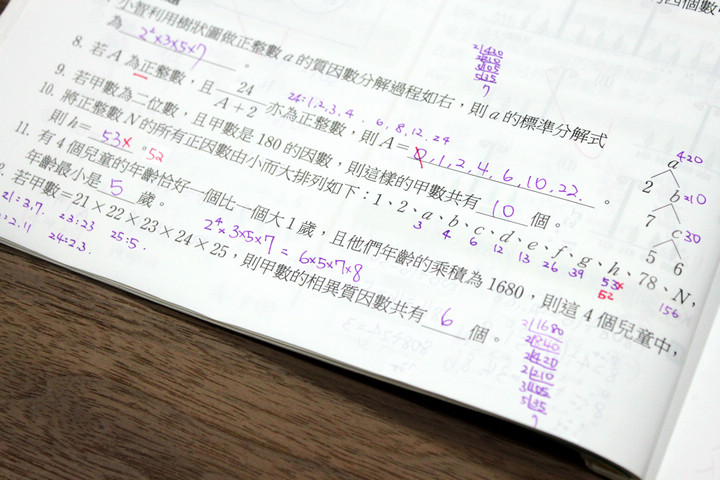 小智利用樹狀圖做正整數 a 的質因數分解過程如右，則 a 的標準分解式
為 2²×3×5×7 。
2|420
2|210
3|105
5|35
7
8. 若 A 為正整數，且 24/(A+2) 亦為正整數，則 A= 0,1,2,4,6,10,22. 。
24:1,2,3,4. 6,8,12.24
9. 若甲數為二位數，且甲數是 180 的因數，則這樣的甲數共有 10 個。
10. 將正整數 N 的所有正因數由小而大排列如下：1、2、a、b、c、d、e、f、g、h、78、N，
3 4 6 12 13 26 39 53x 52 156
則 h= 53x 。52
11. 有 4 個兒童的年齡恰好一個比一個大 1 歲，且他們年齡的乘積為 1680，則這 4 個兒童中，
年齡最小是 5 歲。
2⁴×3×5×7 = 6×5×7×8
若甲數=21×22×23×24×25，則甲數的相異質因數共有 6 個。
21=3.7. 23:23 25:5.
2.11 24=2.3.
a 420
2 b 210
7 c 30
5 6
2|1680
2|840
2|420
2|210
3|105
5|35
7